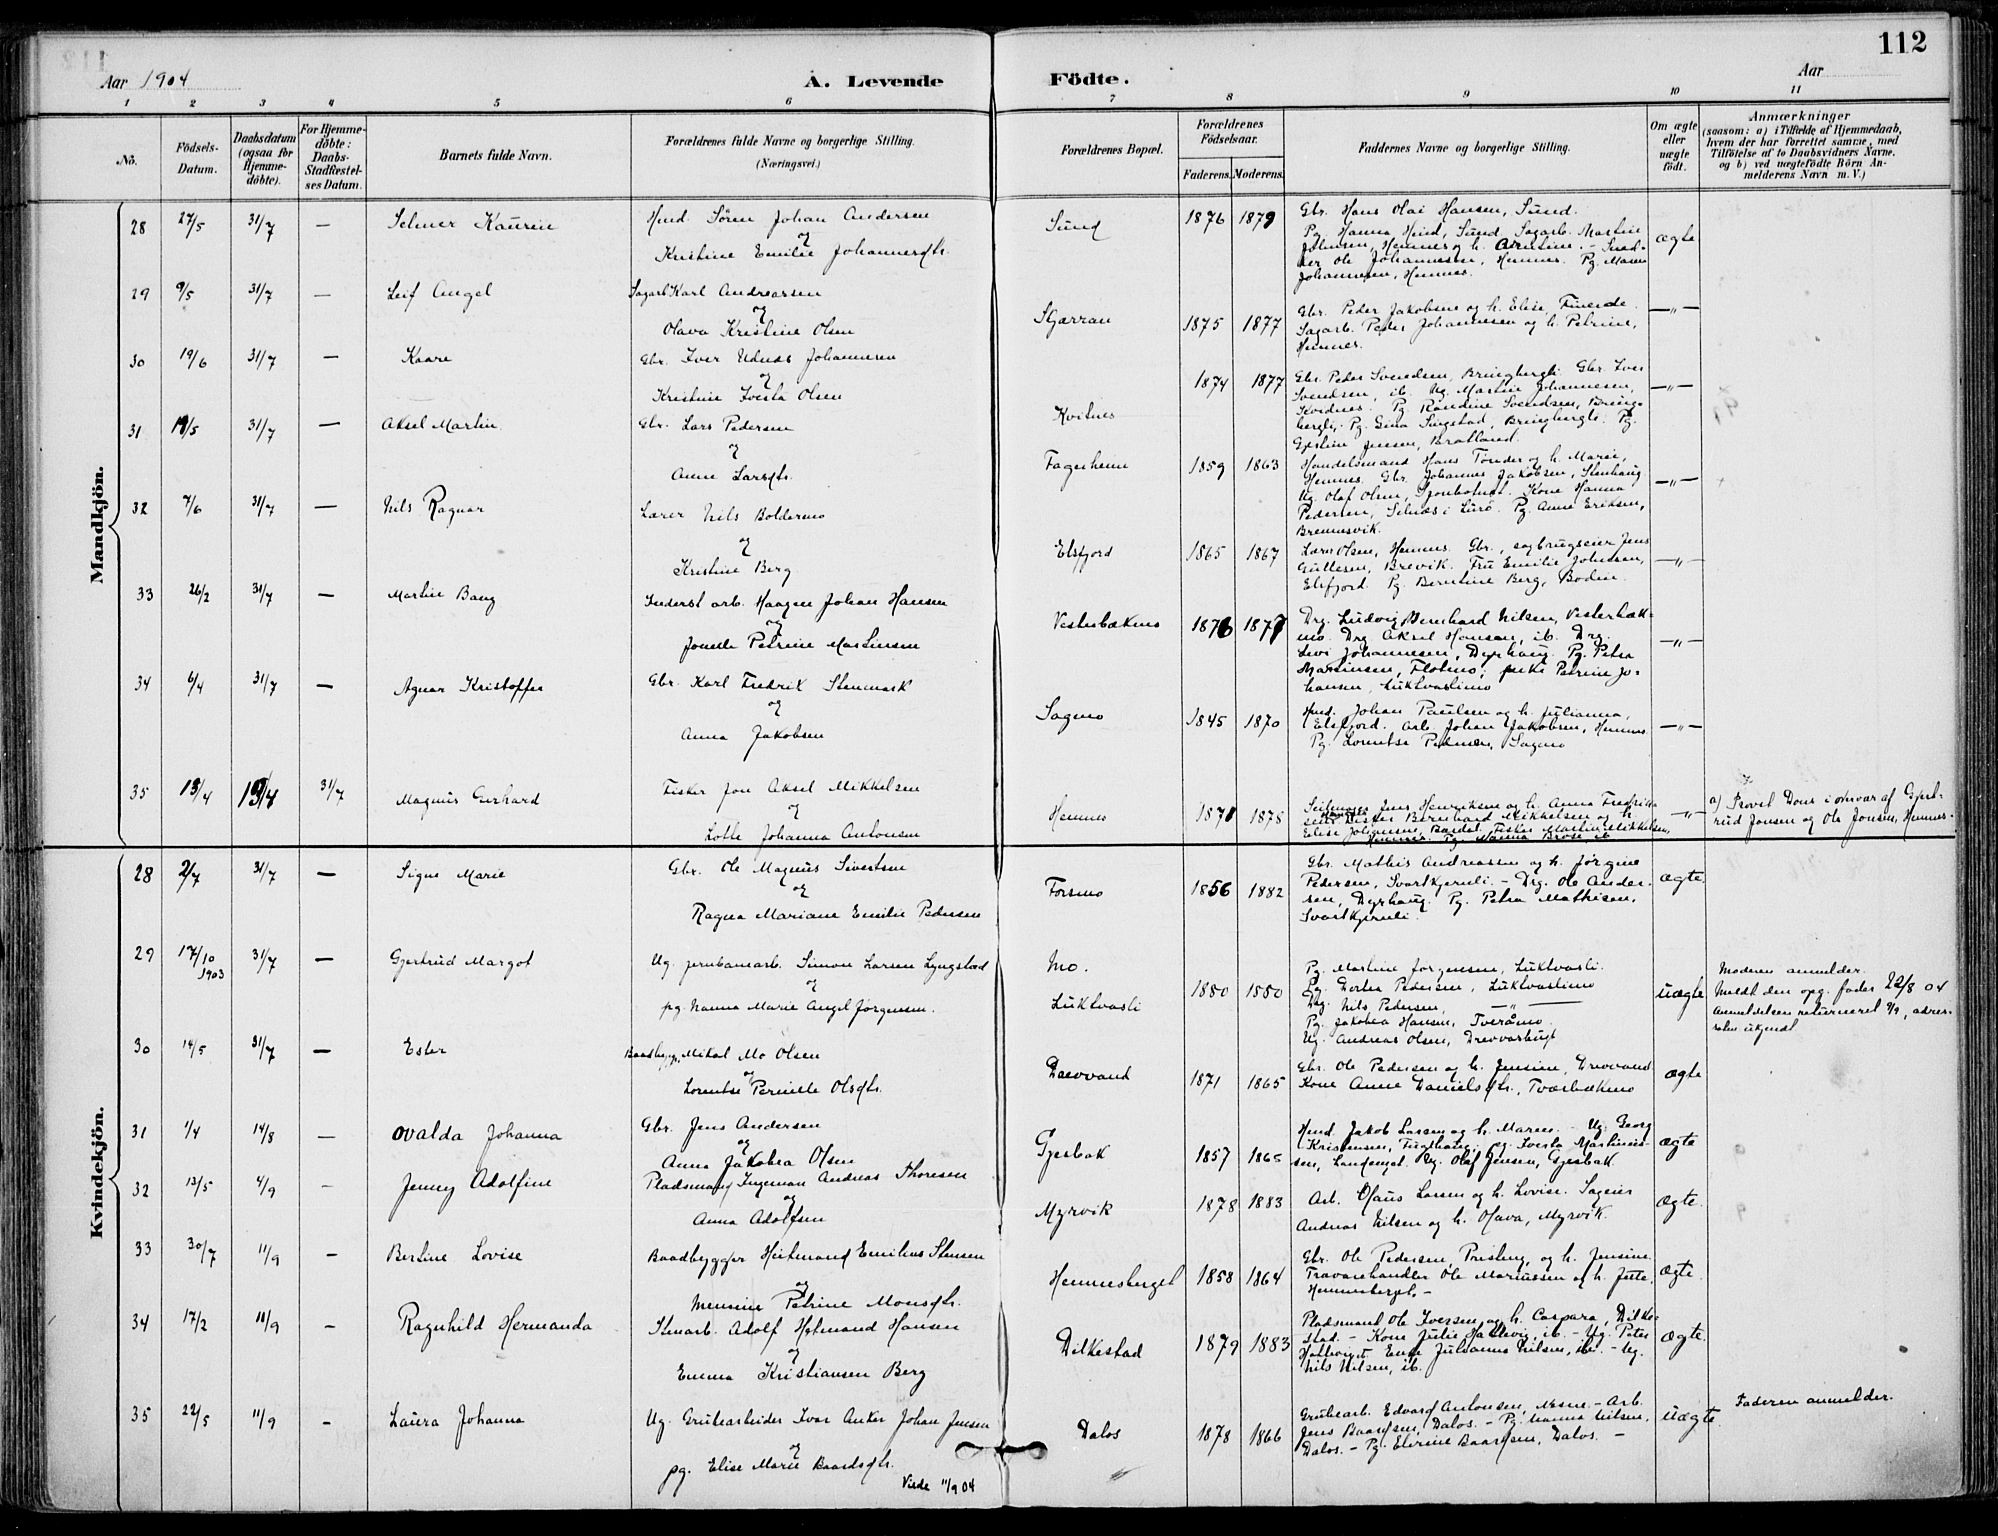 112
Aar 1904
A. Levende Födte.
Aar
1 2 3 4 5 6 7 8 9 10 11
No.
Födsels-Datum.
Daabsdatum (ogsaa for Hjemme-döbte).
For Hjemme-döbte: Daabs-Stadfæstel-ses Datum.
Barnets fulde Navn.
Forældrenes fulde Navne og borgerlige Stilling. (Næringsvei.)
Forældrenes Bopæl.
Forældrenes Födselsaar.
Faderens. Moderens.
Faddernes Navne og borgerlige Stilling.
Om ægte eller uægte födt.
Anmærkninger
(saasom: a) i Tilfælde af Hjemmedaab,
hvem der har forrettet samme, med
Tilföielse af to Daabsvidners Navne,
og b) ved uægtefödte Börn An-
melderens Navn m. V.)
Mandkjön.
28 27/5 31/7 — Selmer Kaurin
Hmd. Sören Johan Andersen
og
Kristine Emilie Johannesdtr.
Sund 1876 1879
Gbr. Hans Olai Hansen, Sund.
Pg. Hanna Hmd, Sund. Sagarb. Martin
Johnsen, Hemnes og h. Arntine. - Sned-
ker Ole Johannesen, Hemnes. Pg. Maren
Johannesen, Hemnes.
ægte
29 9/5 31/7 — Leif Angel
Sagarb Karl Andreassen
og
Olava Kristine Olsen
Skjærran 1875 1877
Gbr. Peder Jakobsen og h. Elise, Fineide.
Sagarb. Peder Johannesen og h. Petrine,
Hemnes.
—"—
30 19/6 31/7 — Kaare
Gbr. Iver Udnæs Johannesen
og
Kristine Iversta Olsen
Kvitnes 1874 1877
Gbr. Peder Svendsen, Bringbergli. Gbr Iver
Svendsen, ib. Ug. Martin Johannesen,
Kvidnes. Pg Randine Svendsen, Bring-
bergli, Pg. Gina Singstad, Bringbergli. Pg.
Gjestine Jensen, Bratland.
—"—
31 19/5 31/7 — Aksel Martin
Gbr. Lars Pedersen
og
Anne Larsdtr.
Fagerheim 1859 1863
Handelsmand Hans Tönder og h. Marie,
Hemnes. Gbr. Johannes Jakobsen, Stenhaug
Ug. Olaf Olsen, Sjonbotnet. Kone Hanna
Pedersen, Selnæs i Lurö. Pg. Anne Eriksen,
Bremnesvik.
—"—
32 7/6 31/7 — Nils Ragnar
Lærer Nils Boldermo
og
Kristine Berg
Elsfjord 1865 1867
Lærer Olsen, Hemnes. Gbr., sagbrugseier Jens
Gullesen, Brevik. Fru Emilie Johnsen,
Elsfjord. Pg. Berntine Berg, Bodin.
—"—
33 26/2 31/7 — Martin Bang
Inderst arb. Haagen Johan Hansen
og
Jonette Petrine Martinsen
Vesterbækmo 1876 1877
Drg. Ludvig Bernhard Nilsen, Vesterbæk-
mo. Drg Aksel Hansen, ib. Drg.
Levi Johannesen, Dyrhaug. Pg. Petra
Martinsen, Flotmo; enke Petrine Jo-
hansen, Luktvaslimo
—"—
34 6/4 31/7 — Agnar Kristoffer
Gbr. Karl Fredrik Stenmark
og
Anna Jakobsen
Sagmo 1845 1870
Hmd. Johan Paulsen og h. Julianna,
Elsfjord. Arb Johan Jakobsen, Hemnes
Pg. Lorentse Pedersen, Sagmo
—"—
35 13/4 19/4 31/7 Magnus Gerhard
Fisker Jon Aksel Mikkelsen
og
Lotte Johanna Antonsen
Hemnes 1871 1878
Jens Henriksen og h. Anna Fredrik-
sen Fisker Bernhard Mikkelsen og h
Elise Johansen, Bardal. Fisker Martin Mikkelsen,
Hemnes. Pg. Nanna Brose, ib
—"—
a) Provst Dons i nærvær af Gjert-
rud Jonsen og Ole Jonsen, Hemnes.
Kvindekjön.
28 2/7 31/7 — Signe Marie
Gbr. Ole Magnus Sivertsen
og
Ragna Mariane Emilie Pedersen
Forsmo 1856 1882
Gbr. Mathis Andreassen og h. Jørgine
Pedersen, Svartkjernli. - Drg. Ole Ander-
sen, Dyrhaug. Pg. Petra Mathisen,
Svartkjernli.
ægte
29 17/10 1903 31/7 — Gjertrud Margot
Ug. jernbanearb. Simon Larsen Lyngstad
og
pg. Nanna Marie Angel Jørgensen.
Mo.
Luktvasli
1880 1880
Pg. Martine Jørgensen, Luktvasli.
Pg. Dortea Pedersen, Luktvaslimo
Drg. Nils Pedersen, —"—
Pg. Jakobea Hansen, Tveråmo.
Ug. Andreas Olsen, Drevvashugt
uægte
Moderen anmelder.
Meldt den opg. fader 22/8 04
Anmeldelsen returneret 9/9, adres-
saten ukjendt.
30 14/5 31/7 — Ester
Baadbygg. Mikal Mo Olsen
og
Lorentse Pernille Olsdtr.
Drevvand 1871 1865
Gbr. Ole Pedersen og h. Jensine, Drevvand
Kone Anne Danielsdtr, Tværbækmo
ægte
31 1/4 14/8 — Ovalda Johanna
Gbr. Jens Andersen
og
Anna Jakobea Olsen
Gjesbak 1857 1865
Hmd. Jakob Larsen og h. Maren. - Ug. Georg
Kristensen, Fuglhaug, pg. Iversta Martinus-
sen, Langenget. Ug. Olaf Jensen, Gjesbak
ægte
32 13/5 4/9 — Jenny Adolfine
Pladsmand Ingeman Andreas Thoresen
og
Anna Adolfsen
Myrvik 1878 1883
Arb. Olaus Larsen og h. Lovise. Sageier
Andreas Nilsen og h. Olava, Myrvik.
ægte
33 30/7 11/9 — Berline Lovise
Baadbygger Heitmand Emilius Stensen
og
Mensine Petrine Monsdtr.
Hemnesberget 1858 1864
Gbr. Ole Pedersen, Presteng, og h. Jensine.
Travarehandler Ole Mariussen og h. Jette,
Hemnesberget. -
ægte
34 17/2 18/9 — Ragnhild Hermanda
Stenarb. Adolf Hetmand Hansen
og
Emma Kristiansen Berg
Dilkestad 1879 1883
Pladsmand Ole Iversen og h. Caspara, Dilke-
stad. - Kone Julie Hattevig, ib. - Ug. Peter
Hattevig, Enke Julianna Nilsen, ib. - Ug.
Nils Nilsen, ib.
ægte
35 22/5 11/9 — Laura Johanna
Ug. Grubearbeider Ivar Anker Johan Jensen
og
pg. Elise Marie Baardsdtr.
Dalos 1878 1866
Grubearb. Edvard Antonsen, Nesna. - Arb.
Jens Baardsen, Dalos. - Pg. Nanna Nilsen,
Dalos. - Pg. Elverine Baardsen, Dalos. -
uægte
Faderen anmelder.
Viede 11/9 04